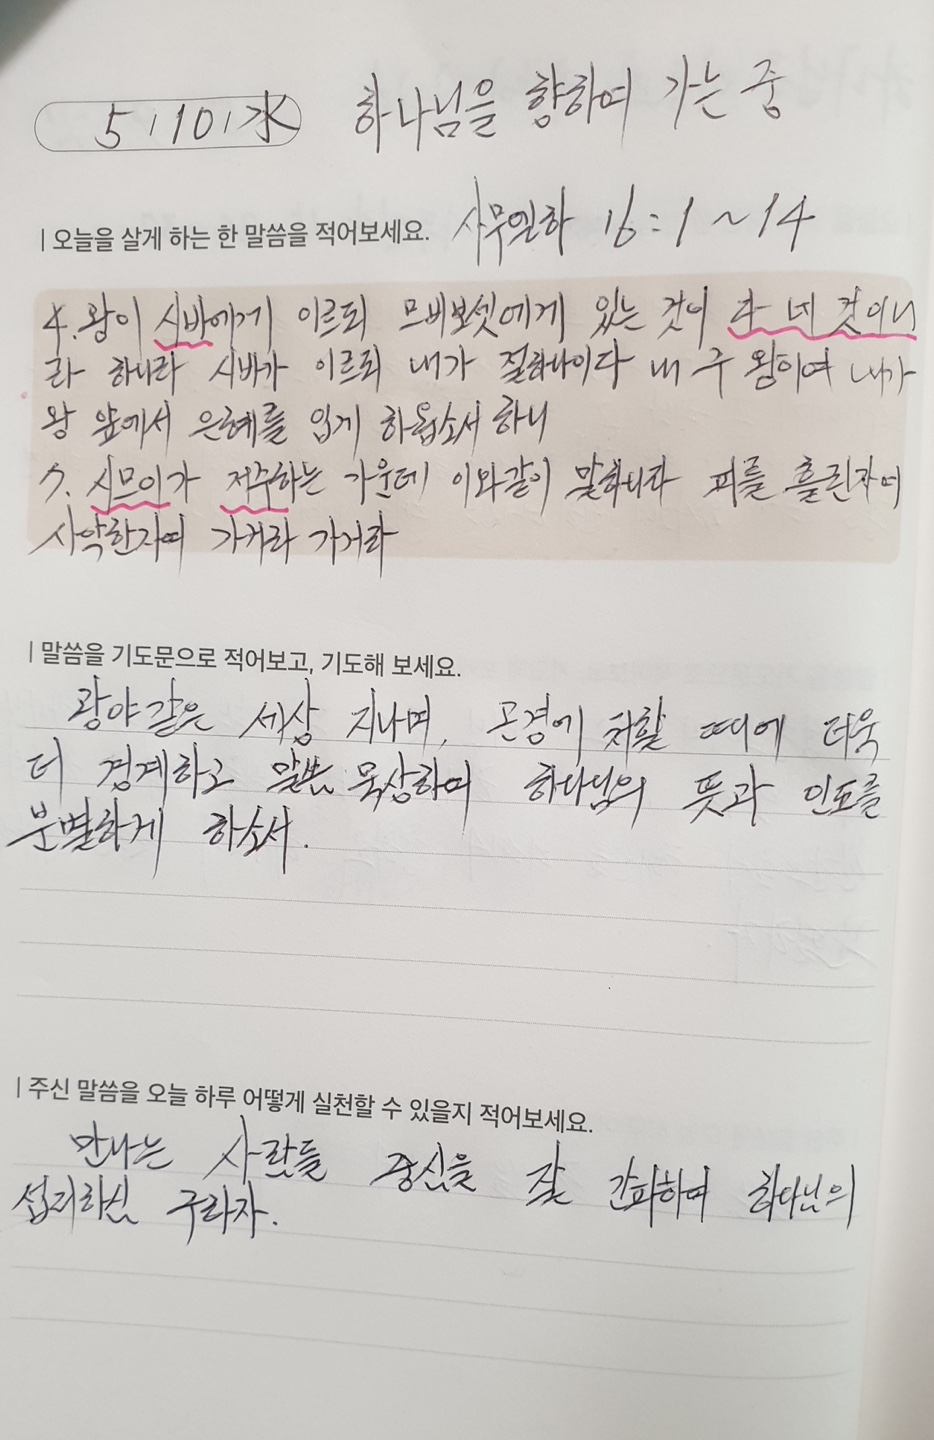 5 | 10 | 水 하나님을 향하여 가는 중
| 오늘을 살게 하는 한 말씀을 적어보세요. 사무엘하 16 : 1 ~ 14
4. 왕이 시바에게 이르되 므비보셋에게 있는 것이 다 네 것이니
라 하니라 시바가 이르되 내가 절하나이다 내 주 왕이여 내가
왕 앞에서 은혜를 입게 하옵소서 하니
7. 시므이가 저주하는 가운데 이와같이 말하니라 피를 흘린자여
사악한자여 가거라 가거라
| 말씀을 기도문으로 적어보고, 기도해 보세요.
광야같은 세상 지나며, 곤경에 처할 때에 더욱
더 경계하고 말씀 묵상하며 하나님의 뜻과 인도를
분별하게 하소서.
| 주신 말씀을 오늘 하루 어떻게 실천할 수 있을지 적어보세요.
만나는 사람들 중심을 잘 간파하여 하나님의
섭리하심 구하자.